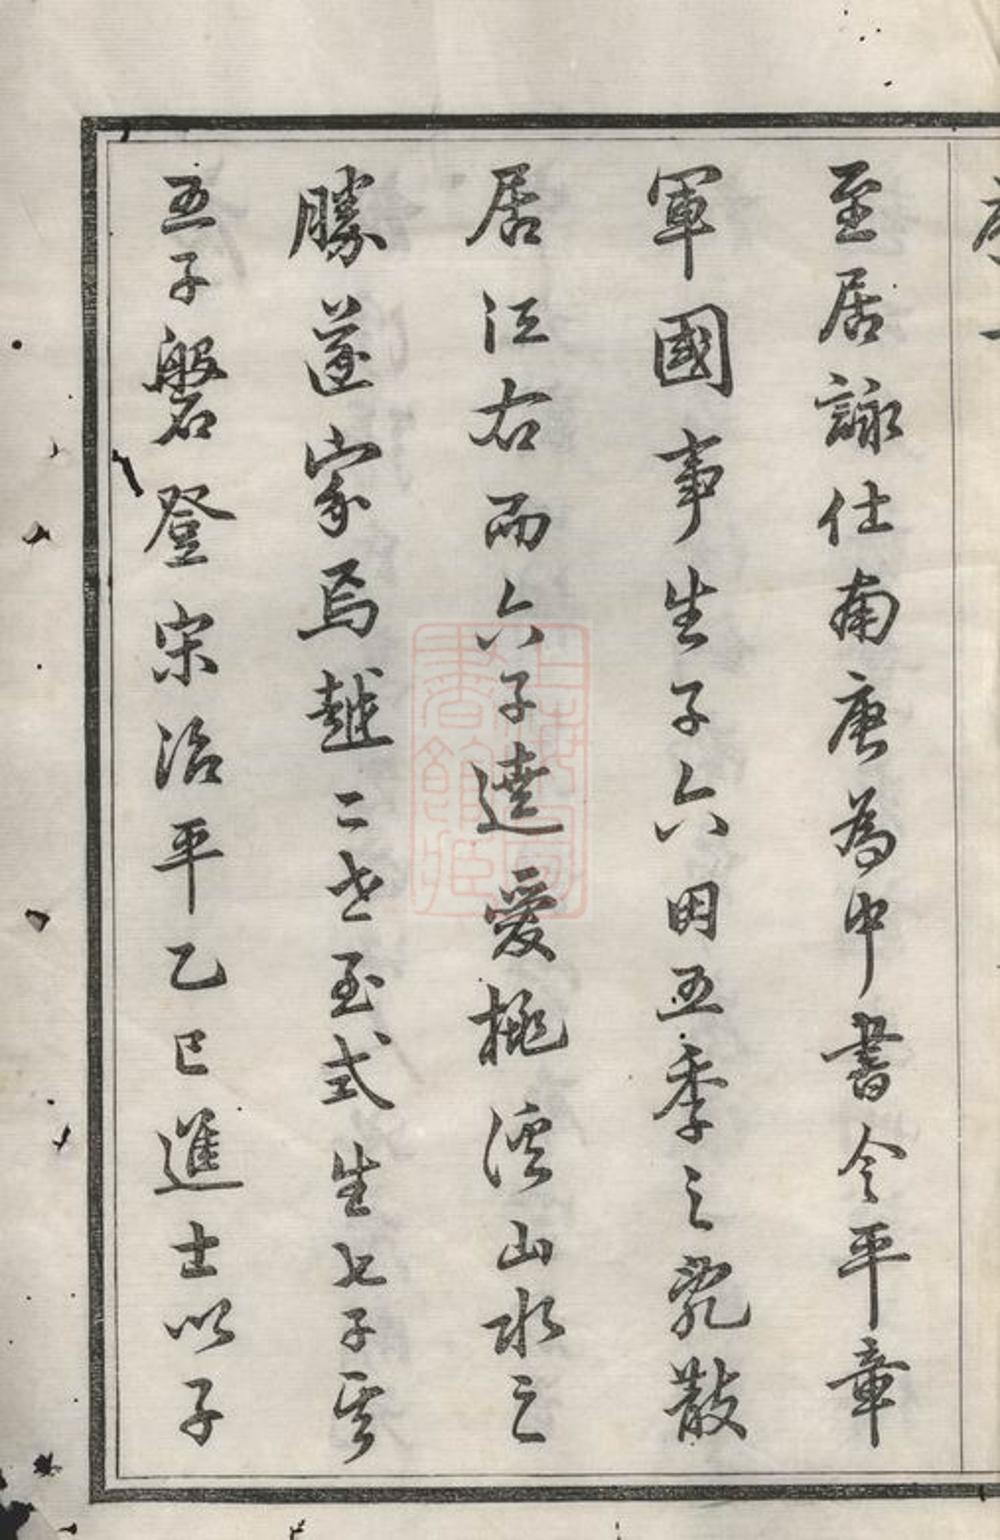 至居詠仕南唐為中書令平章
軍國事生子六因五季之亂散
居江右而六子遶愛桃溪山水之
勝遂家焉越二世至式生七子其
五子磐登宋治平乙巳進士以子